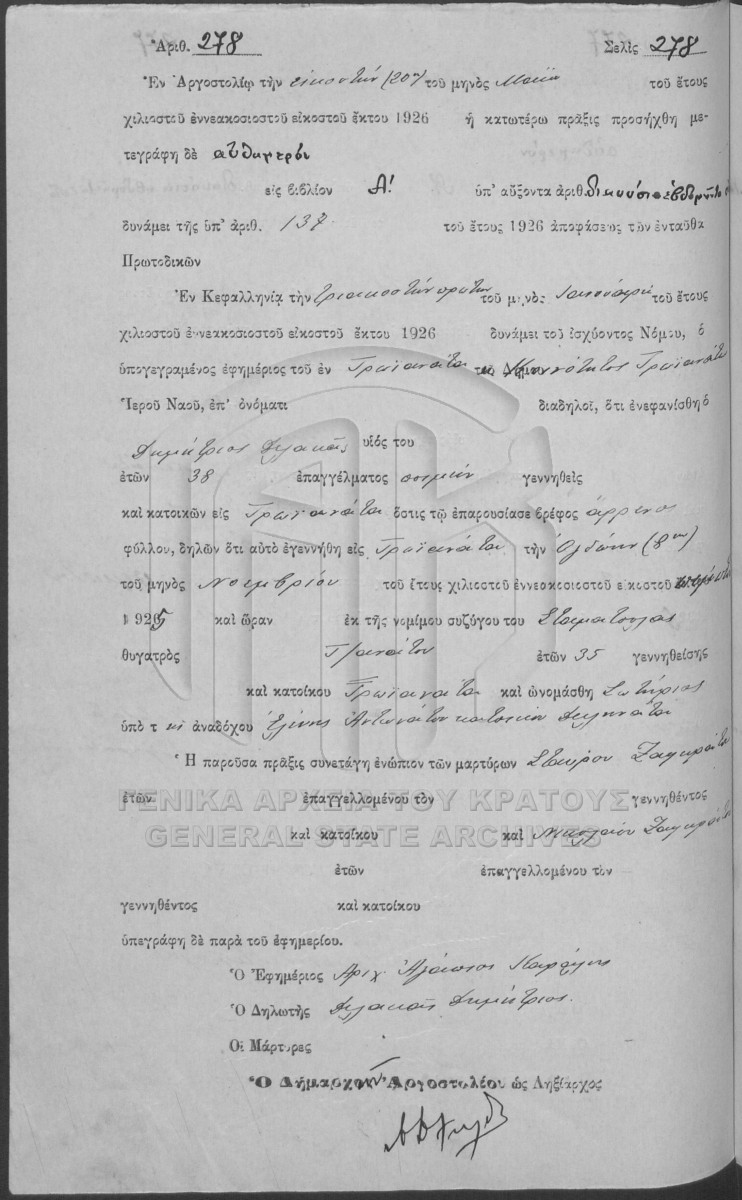 Ἀριθ. 278 Σελὶς 278
Ἐν Ἀργοστολίῳ τὴν εἰκοστήν (20ην) τοῦ μηνὸς Μαΐου τοῦ ἔτους
χιλιοστοῦ ἐννεακοσιοστοῦ εἰκοστοῦ ἕκτου 1926 ἡ κατωτέρω πρᾶξις προσήχθη με-
τεγράφη δὲ αὐθημερόν
εἰς βιβλίον Α! ὑπ' αὔξοντα ἀριθ.
δυνάμει τῆς ὑπ' ἀριθ. 137 τοῦ ἔτους 1926 ἀποφάσεως τῶν ἐνταῦθα
Πρωτοδικῶν
Ἐν Κεφαλληνίᾳ τὴν τριακοστήν πρώτην τοῦ μηνὸς Ἰανουαρίου τοῦ ἔτους
χιλιοστοῦ ἐννεακοσιοστοῦ εἰκοστοῦ ἕκτου 1926 δυνάμει τοῦ ἰσχύοντος Νόμου, ὁ
ὑπογεγραμένος ἐφημέριος τοῦ ἐν Τρωϊανάτα Κοινότητος Τρωϊανάτων
Ἱεροῦ Ναοῦ, ἐπ' ὀνόματι διαδηλοῖ, ὅτι ἐνεφανίσθη ὁ
Δημήτριος υἱός του
ἐτῶν 38 ἐπαγγέλματος ποιμήν γεννηθεὶς
καὶ κατοικῶν εἰς Τρωϊανάτα ὅστις τῷ ἐπαρουσίασε βρέφος ἄρρενος
φύλλου, δηλῶν ὅτι αὐτὸ ἐγεννήθη εἰς Τρωϊανάτα τὴν Ὀγδόην (8ην)
τοῦ μηνὸς Νοεμβρίου τοῦ ἔτους χιλιοστοῦ ἐννεακοσιοστοῦ εἰκοστοῦ
1925 καὶ ὥραν ἐκ τῆς νομίμου συζύγου του Σταματούλας
θυγατρὸς ἐτῶν 35 γεννηθείσης
καὶ κατοίκου Τρωϊανάτα καὶ ὠνομάσθη Σωτήριος
ὑπὸ τ ῆς ἀναδόχου Ἑλένης Ἀντωνάτου κατοίκου
Ἡ παροῦσα πρᾶξις συνετάγη ἐνώπιον τῶν μαρτύρων Σταύρου Ζαπράτου
ἐτῶν ἐπαγγελλομένου τὸν γεννηθέντος
ΓΕΝΙΚΑ ΑΡΧΕΙΑ ΤΟΥ ΚΡΑΤΟΥΣ
GENERAL STATE ARCHIVES
καὶ κατοίκου καὶ
ἐτῶν ἐπαγγελλομένου τὸν
γεννηθέντος καὶ κατοίκου
ὑπεγράφη δὲ παρὰ τοῦ ἐφημερίου.
Ὁ Ἐφημέριος Ἀρχ.
Ὁ Δηλωτὴς Δημήτριος
Οἱ Μάρτυρες
Ὁ Δήμαρχος Ἀργοστολίου ὡς Ληξίαρχος